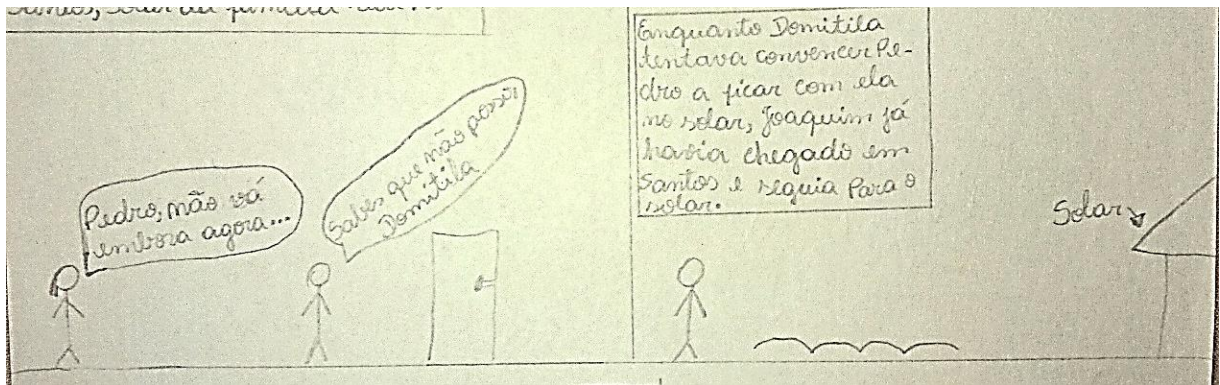 Santos, solar da família
Pedro, não vá
embora agora...
Sabes que não posso,
Domitila
Enquanto Domitila
tentava convencer Pe-
dro a ficar com ela
no solar, Joaquim já
havia chegado em
Santos e seguia Para o
solar.
Solar